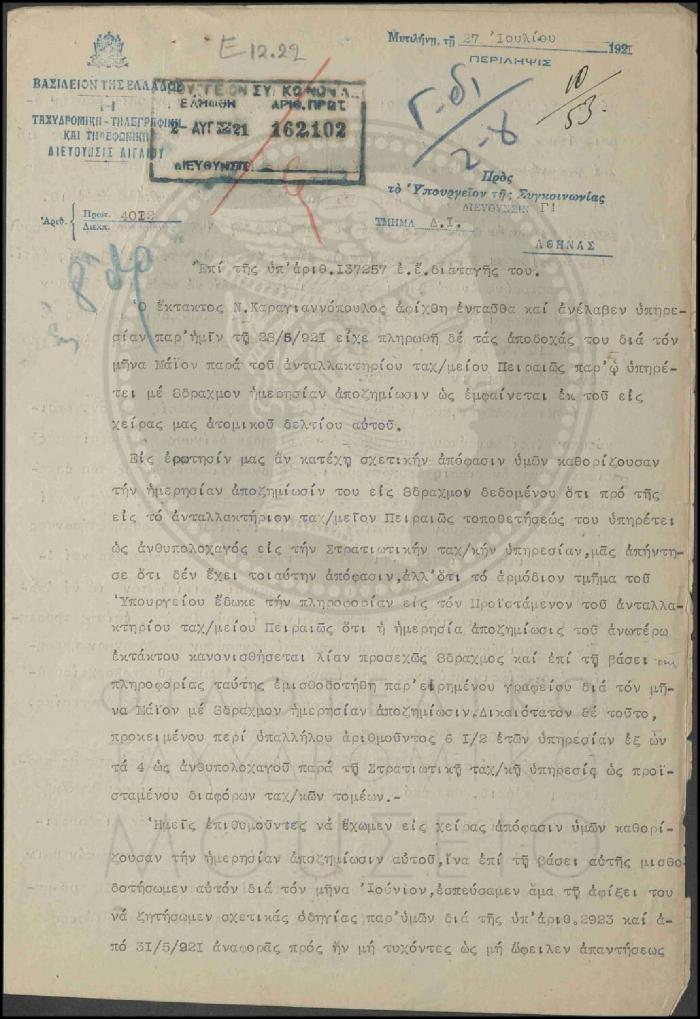 Ε 12.22
Μυτιλήνη, τῇ 27 Ἰουλίου 1921
ΠΕΡΙΛΗΨΙΣ
ΒΑΣΙΛΕΙΟΝ ΤΗΣ ΕΛΛΑΔΟΣ
Η
ΤΑΧΥΔΡΟΜΙΚΗ-ΤΗΛΕΓΡΑΦΙΚΗ
ΚΑΙ ΤΗΛΕΦΩΝΙΚΗ
ΔΙΕΥΘΥΝΣΙΣ ΑΙΓΑΙΟΥ
ΕΛΗΦΘΗ ΑΡΙΘ. ΠΡΩΤ.
2- ΑΥΓ 21 162102
ΔΙΕΥΘΥΝΣΙΣ
2-8
10
53
Πρὸς
τὸ Ὑπουργεῖον τῆς Συγκοινωνίας
ΔΙΕΥΘΥΝΣΙΝ Γ!
Ἀριθ. Πρωτ. 4012
Διεκπ.
ΤΜΗΜΑ Δ.Ι.
ΑΘΗΝΑΣ
Ἐπί τῆς ὑπ'ἀριθ.137257 ἐ.ἔ.διαταγῆς του.
Ὁ ἔκτακτος Ν.Καραγιαννόπουλος ἀφίχθη ἐνταῦθα καί ἀνέλαβεν ὑπηρε-
σίαν παρ'ἡμῖν τῇ 28/5/921 εἶχε πληρωθῆ δέ τάς ἀποδοχάς του διά τόν
μῆνα Μάϊον παρά τοῦ ἀνταλλακτηρίου ταχ/μείου Πειραιῶς παρ'ᾧ ὑπηρέ-
τει μέ 8δραχμον ἡμερησίαν ἀποζημίωσιν ὡς ἐμφαίνεται ἐκ τοῦ εἰς
χεῖρας μας ἀτομικοῦ δελτίου αὐτοῦ.
Εἰς ἐρώτησίν μας ἄν κατέχῃ σχετικήν ἀπόφασιν ὑμῶν καθορίζουσαν
τήν ἡμερησίαν ἀποζημίωσίν του εἰς 8δραχμον δεδομένου ὅτι πρό τῆς
εἰς τό ἀνταλλακτήριον ταχ/μεῖον Πειραιῶς τοποθετήσεώς του ὑπηρέτει
ὡς ἀνθυπολοχαγός εἰς τήν Στρατιωτικήν ταχ/κήν ὑπηρεσίαν,μᾶς ἀπήντη-
σε ὅτι δέν ἔχει τοιαύτην ἀπόφασιν,ἀλλ'ὅτι τό ἁρμόδιον τμῆμα τοῦ
Ὑπουργείου ἔδωκε τήν πληροφορίαν εἰς τόν Προϊστάμενον τοῦ ἀνταλλα-
κτηρίου ταχ/μείου Πειραιῶς ὅτι ἡ ἡμερησία ἀποζημίωσις τοῦ ἀνωτέρω
ἐκτάκτου κανονισθήσεται λίαν προσεχῶς 8δραχμος καί ἐπί τῇ βάσει τῆς
πληροφορίας ταύτης ἐμισθοδοτήθη παρ'εἰρημένου γραφείου διά τόν μῆ-
να Μάϊον μέ 8δραχμον ἡμερησίαν ἀποζημίωσιν.Δικαιότατον δέ τοῦτο,
προκειμένου περί ὑπαλλήλου ἀριθμοῦντος 6 1/2 ἐτῶν ὑπηρεσίαν ἐξ ὧν
τά 4 ὡς ἀνθυπολοχαγοῦ παρά τῇ Στρατιωτικῇ ταχ/κῇ ὑπηρεσίᾳ ὡς προϊ-
σταμένου διαφόρων ταχ/κῶν τομέων.-
Ἡμεῖς ἐπιθυμοῦντες νά ἔχωμεν εἰς χεῖρας ἀπόφασιν ὑμῶν καθορί-
ζουσαν τήν ἡμερησίαν ἀποζημίωσιν αὐτοῦ,ἵνα ἐπί τῇ βάσει αὐτῆς μισθο
δοτήσωμεν αὐτόν διά τόν μῆνα Ἰούνιον,ἐσπεύσαμεν ἅμα τῇ ἀφίξει του
νά ζητήσωμεν σχετικάς ὁδηγίας παρ'ὑμῶν διά τῆς ὑπ'ἀριθ.2923 καί ἀ-
πό 31/5/921 ἀναφορᾶς πρός ἥν μή τυχόντες ὡς μή ὤφειλεν ἀπαντήσεως